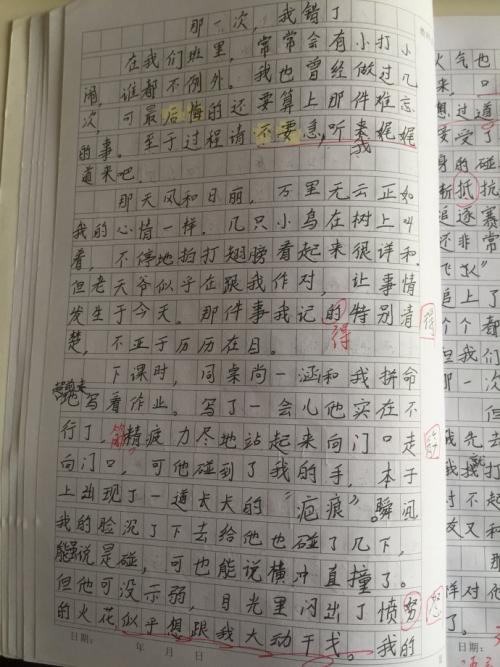 那一次，我错了
在我们班里，常常会有小打小
闹，谁都不例外。我也曾经做过几
次，可最后悔的还要算上那件难忘
的事。至于过程请不要急，听来娓娓
我
道来吧。
那天风和日丽，万里无云正如
我的心情一样。几只小鸟在树上叫
着，不停地拍打翅膀看起来很详和。
但老天爷似乎在跟我作对，让事情
发生于今天。那件事我记的特别清
得
得
楚，不亚于历历在目。
下课时，同桌尚一涵和我拼命
地写着作业。写了一会儿他实在不
行了，精疲力尽地站起来向门口走
向门口，可他碰到了我的手，本子
上出现了一道长长的“疤痕”。瞬间
我的脸沉了下去给他也碰了几下，
虽说是碰，可也能说横冲直撞了。
但他可没示弱，目光里闪出了愤努
怒
的火花似乎想跟我大动干戈。我的
日期： 年 月 日
火气也
来，口
想，过道
要受了
身的碰
抵抗
追逐暴
还非常
追上了
个个都
但我们
那一次
但
我先去
我
对不起
故又和
那
样对他
了